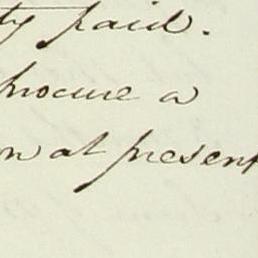 ty paid.
procure a
on at present